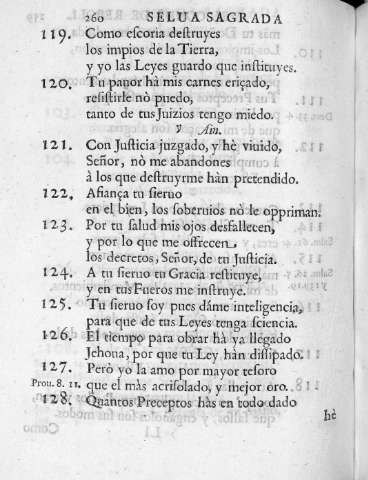 260 SELUA SAGRADA
119. Como escoria destruyes
los impios de la Tierra,
y yo las Leyes guardo que instituyes.
120. Tu pauor hà mis carnes eriçado,
resistirle nò puedo,
tanto de tus Juizios tengo miedo.
ע Ain.
121. Con Justicia juzgado, y hè viuido,
Señor, nò me abandones
à los que destruyrme hàn pretendido.
122. Afiança tu sieruo
en el bien, los soberuios nò le oppriman.
123. Por tu salud mis ojos desfallecen,
y por lo que me offrecen
los decretos, Señor, de tu Justicia.
124. A tu sieruo tu Gracia restituye,
y en tus Fueros me instruye.
125. Tu sieruo soy pues dáme inteligencia,
para que de tus Leyes tenga sciencia.
126. El tiempo para obrar hà ya llegado
Jehoua, por que tu Ley hàn dissipado.
127. Però yo la amo por mayor tesoro
Prou. 8. 11. que el màs acrisolado, y mejor oro.
128. Quantos Preceptos hàs en todo dado
hè